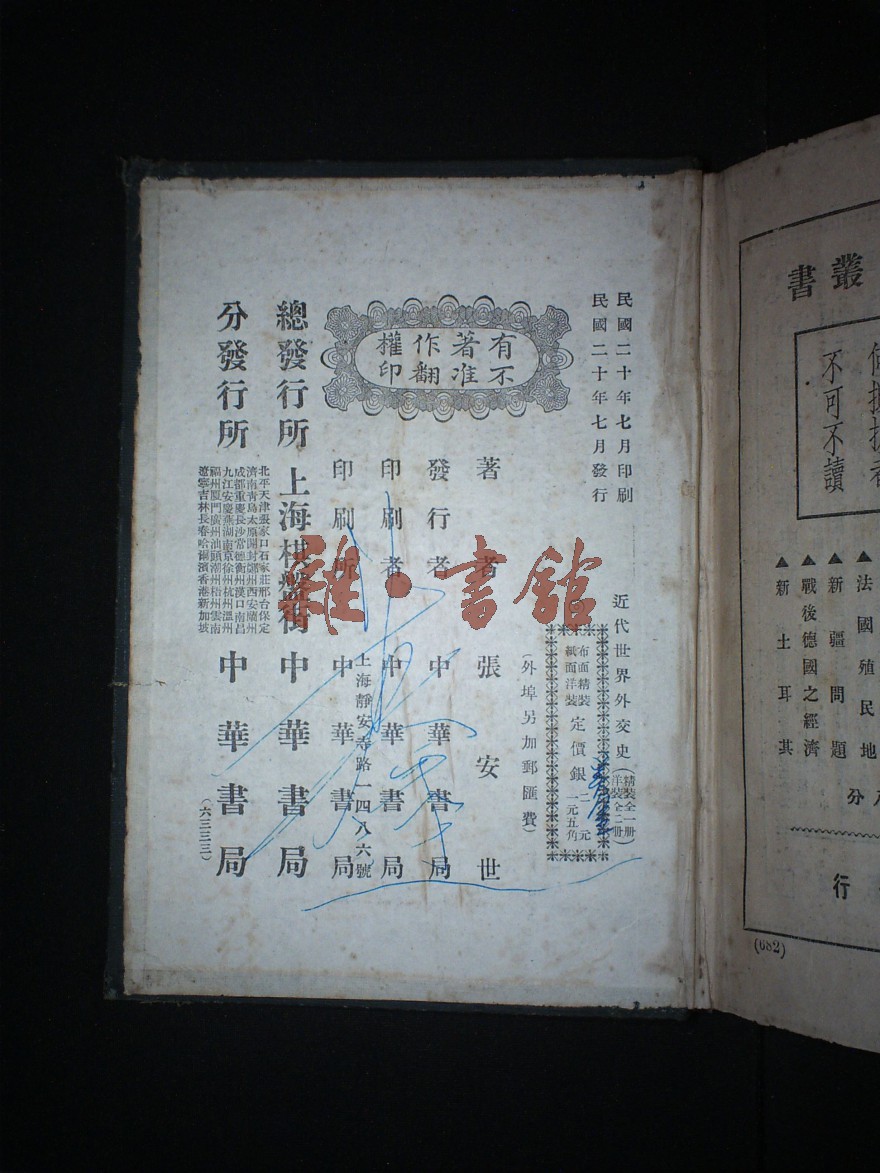 民國二十年七月印刷
民國二十年七月發行
有著作權
不准翻印
近代世界外交史(精裝全一册 洋裝全二册)
布面精裝 定價銀 二元
紙面洋裝 定價銀 一元五角
(外埠另加郵匯費)
著者 張安世
發行者 中華書局
印刷者 中華書局
印刷所 上海靜安寺路一四八六號 中華書局
總發行所 上海棋盤街 中華書局
分發行所
北平天津張家口石家莊邢台保定
濟南青島太原開封鄭州西安蘭州
成都重慶長沙常德衡州漢口南昌
九江安慶蕪湖南京徐州杭州溫州
福州厦門廣州汕頭潮州梧州雲南
遼寧吉林長春哈爾濱香港新加坡
中華書局
(六三三三)
雜·書館
叢書
不可不讀
▲法國殖民地
▲新疆問題
▲戰後德國之經濟
▲新土耳其
分
行
(682)